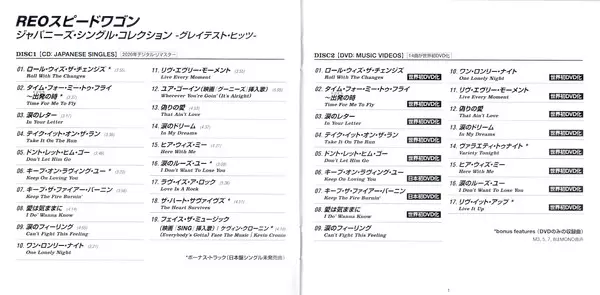 REOスピードワゴン
ジャパニーズ・シングル・コレクション -グレイテスト・ヒッツ-
DISC1 [CD: JAPANESE SINGLES] [2020年デジタル・リマスター]
01. ロール・ウィズ・ザ・チェンジズ *
Roll With The Changes
02. タイム・フォー・ミー・トゥ・フライ
〜出発の時 *
Time For Me To Fly
03. 涙のレター
In Your Letter
04. テイク・イット・オン・ザ・ラン
Take It On The Run
05. ドント・レット・ヒム・ゴー
Don't Let Him Go
06. キープ・オン・ラヴィング・ユー *
Keep On Loving You
07. キープ・ザ・ファイアー・バーニン
Keep The Fire Burnin'
08. 愛は気ままに
I Do' Wanna Know
09. 涙のフィーリング
Can't Fight This Feeling
10. ワン・ロンリー・ナイト
One Lonely Night
11. リヴ・エヴリー・モーメント
Live Every Moment
12. ユア・ゴーイン(映画「グーニーズ」挿入歌)
Wherever You're Goin' (It's Alright)
13. 偽りの愛
That Ain't Love
14. 涙のドリーム
In My Dreams
15. ヒア・ウィズ・ミー
Here With Me
16. 涙のルーズ・ユー *
I Don't Want To Lose You
17. ラヴ・イズ・ア・ロック
Love Is A Rock
18. ザ・ハート・サヴァイヴズ *
The Heart Survives
19. フェイス・ザ・ミュージック
(映画「SING」挿入歌) / ケヴィン・クローニン *
(Everybody's Gotta) Face The Music / Kevin Cronin
*ボーナス・トラック(日本盤シングル未発売曲)
DISC2 [DVD: MUSIC VIDEOS] [14曲が世界初DVD化]
01. ロール・ウィズ・ザ・チェンジズ
Roll With The Changes 世界初DVD化
02. タイム・フォー・ミー・トゥ・フライ
〜出発の時
Time For Me To Fly 世界初DVD化
03. 涙のレター
In Your Letter 世界初DVD化
04. テイク・イット・オン・ザ・ラン
Take It On The Run 世界初DVD化
05. ドント・レット・ヒム・ゴー
Don't Let Him Go 世界初DVD化
06. キープ・オン・ラヴィング・ユー
Keep On Loving You 日本初DVD化
07. キープ・ザ・ファイアー・バーニン
Keep The Fire Burnin' 日本初DVD化
08. 愛は気ままに
I Do' Wanna Know 世界初DVD化
09. 涙のフィーリング
Can't Fight This Feeling
10. ワン・ロンリー・ナイト
One Lonely Night 世界初DVD化
11. リヴ・エヴリー・モーメント
Live Every Moment 世界初DVD化
12. 偽りの愛
That Ain't Love 世界初DVD化
13. 涙のドリーム
In My Dreams 世界初DVD化
14. ヴァラエティ・トゥナイト *
Variety Tonight 世界初DVD化
15. ヒア・ウィズ・ミー
Here With Me 世界初DVD化
16. 涙のルーズ・ユー
I Don't Want To Lose You 世界初DVD化
17. リヴ・イット・アップ *
Live It Up 世界初DVD化
*bonus features (DVDのみの収録曲)